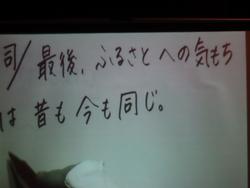 司/最後、ふるさとへの気もち
は 昔も今も同じ。